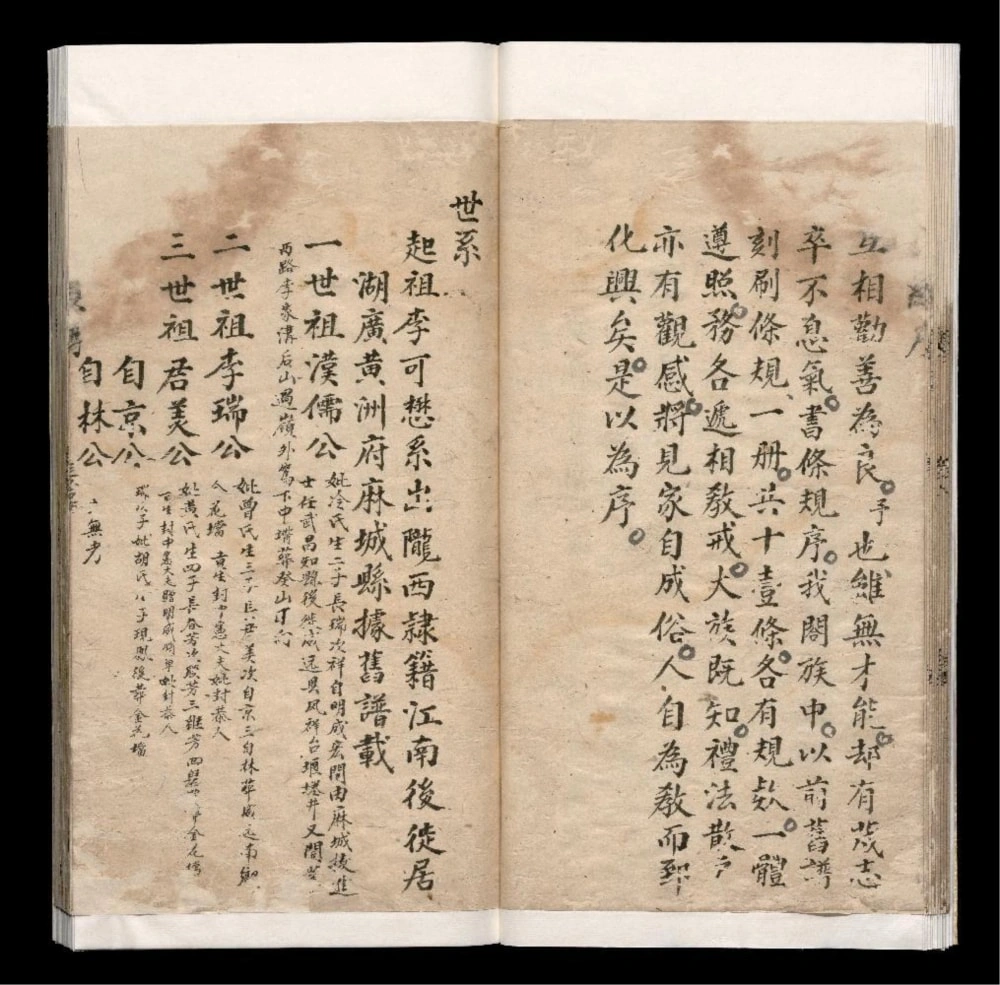 互相勸善為良予也雖無才能却有茂志
卒不息氣書條規序我閤族中以前舊譜
刻刷條規一册共十壹條各有規欵一體
遵照務各遞相敎戒大族既知禮法散戶
亦有觀感將見家自成俗人自為敎而郅
化興矣是以為序
世系
起祖李可懋系出隴西隸籍江南後徙居
湖廣黄洲府麻城縣據舊譜載
一世祖漢儒公
妣冷氏生二子長瑞次祥自明成宏間由麻城拔進
士任武昌知縣後然咸远具风祥台堰塔井又間
西路李家溝后山過嶺外寫下中壩葬癸山丁向
二世祖李瑞公
妣曾氏生三子長君美次自京三自林葬咸远南鄉
花壋
三世祖君美公
妣黄氏生四子長春芳次殿芳三繼芳四
自京公
自林公
無考